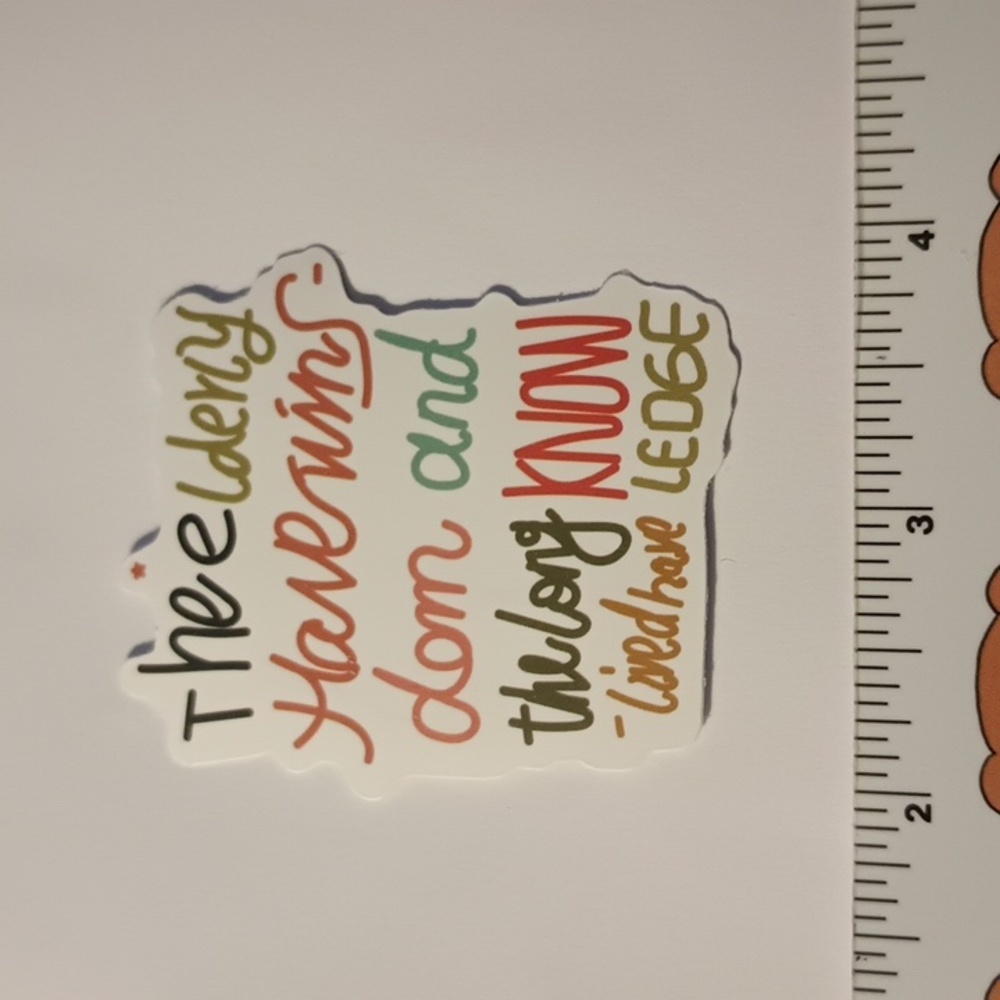 Thee lderly
Have wis-
dom and
the long KNOW
-lived have LEDGE
2
3
4